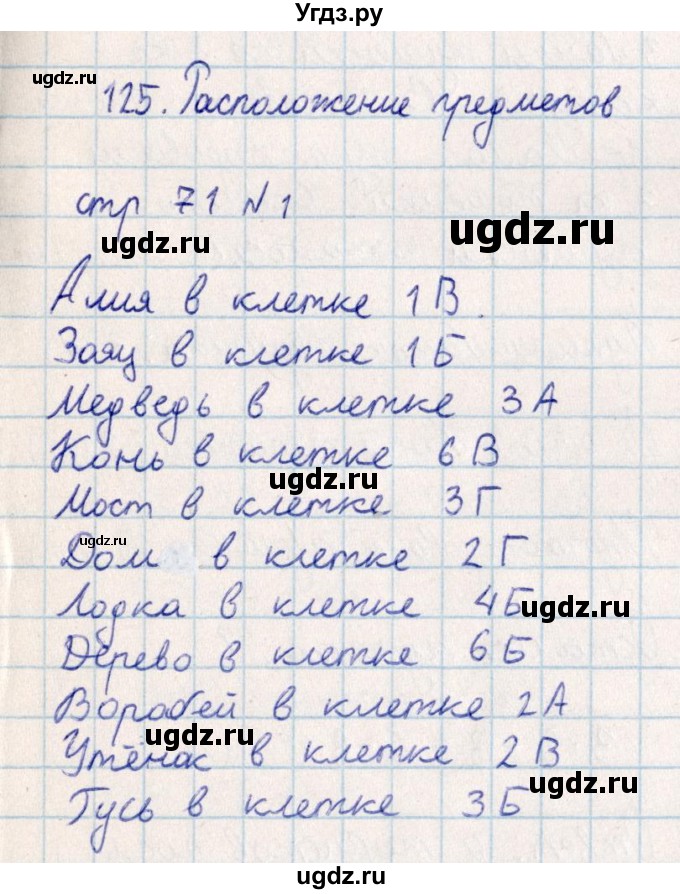 Угдз.ру
ugdz.ru
125. Расположение предметов
стр 71 №1
ugdz.ru
ugdz.ru
Алия в клетке 1В.
Заяц в клетке 1Б
Медведь в клетке 3А
Конь в клетке 6В
ugdz.ru
Мост в клетке 3Г
ugdz.ru
Дом в клетке 2Г
Лодка в клетке 4Б
ugdz.ru
Дерево в клетке 6Б
Воробей в клетке 2А
ugdz.ru
Утёнок в клетке 2В
ugdz.ru
Гусь в клетке 3Б
ugdz.ru